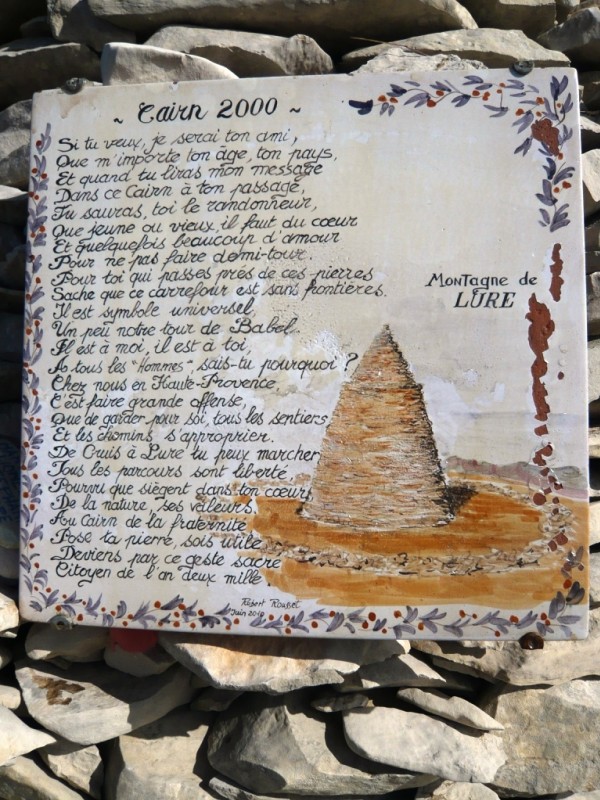 ~ Cairn 2000 ~
Si tu veux, je serai ton ami,
Que m'importe ton âge, ton pays,
Et quand tu liras mon message
Dans ce Cairn à ton passage,
Tu sauras, toi le randonneur,
Que jeune ou vieux, il faut du cœur
Et quelquefois beaucoup d'amour
Pour ne pas faire demi-tour.
Pour toi qui passes près de ces pierres
Sache que ce carrefour est sans frontières.
Il est symbole universel,
Un peu notre tour de Babel.
Il est à moi, il est à toi,
A tous les "Hommes", sais-tu pourquoi ?
Chez nous en Haute-Provence,
C'est faire grande offense,
Que de garder pour soi, tous les sentiers
Et les chemins s'approprier.
De Cruis à Lure tu peux marcher
Tous les parcours sont liberté,
Pourvu que siègent dans ton cœur,
De la nature, ses veilleurs.
Au Cairn de la fraternité
Pose ta pierre, sois utile
Deviens par ce geste sacré
Citoyen de l'an deux mille.
Montagne de
LURE
Robert Rousset
Juin 2010